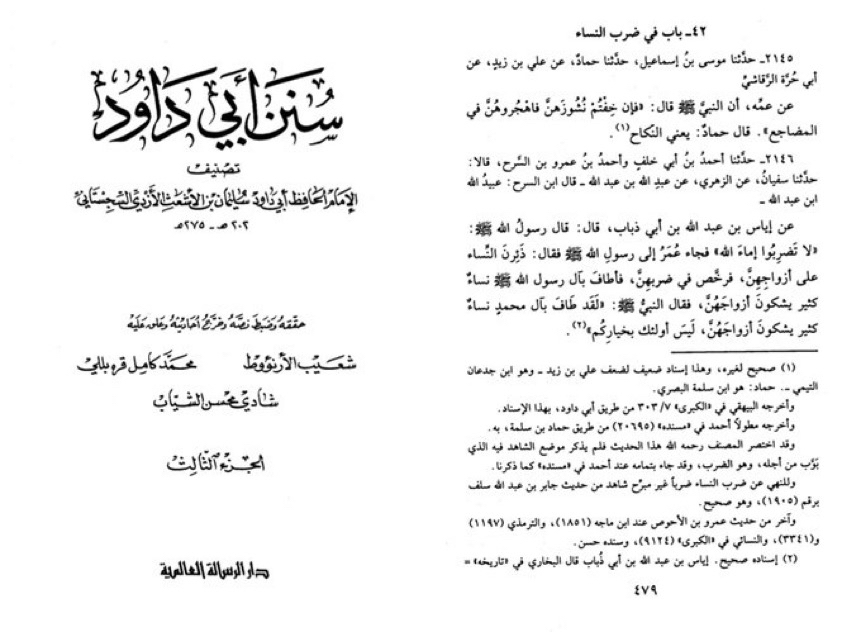 سُنَن أَبِي دَاوُد
تصنيف
الإمام الحافظ أبي داود سليمان بن الأشعث الأزدي السجستاني
٢٠٢ هـ - ٢٧٥ هـ
حققه وضبط نصه وخرج أحاديثه وعلق عليه
شعيب الأرنؤوط محمد كامل قره بللي
شادي محسن الشياب
الجزء الثالث
دار الرسالة العالمية
٤٢ـ باب في ضرب النساء
٢١٤٥ـ حدَّثنا موسى بنُ إسماعيل، حدَّثنا حمادٌ، عن علي بن زيدٍ، عن
أبي حُرَّة الرَّقاشيِّ
عن عمِّه، أن النبيَّ ﷺ قال: «فإن خِفْتُمْ نُشُوزَهنَّ فاهْجُروهُنَّ في
المضاجع». قال حمادٌ: يعني النِّكاح(١).
٢١٤٦ـ حدَّثنا أحمدُ بنُ أبي خلفٍ وأحمدُ بنُ عمرو بن السَّرح، قالا:
حدَّثنا سفيانُ، عن الزهري، عن عبدِ الله بن عبد الله ـ قال ابن السرح: عبيدُ الله
ابن عبد الله ـ
عن إياس بن عبد الله بن أبي ذباب، قال: قال رسولُ الله ﷺ:
«لا تَضرِبُوا إماءَ الله» فجاء عُمَرُ إلى رسولِ الله ﷺ فقال: ذَئِرنَ النِّساء
على أزواجِهِنَّ، فرخَّص في ضربهنَّ، فأطافَ بآل رسول الله ﷺ نساءٌ
كثير يشكونَ أزواجَهُنَّ، فقال النبيُّ ﷺ: «لَقَد طَافَ بآل محمدٍ نساءٌ
كثير يشكونَ أزواجَهُنَّ، لَيسَ أولئك بخيارِكُم»(٢).
(١) صحيح لغيره، وهذا إسناد ضعيف لضعف علي بن زيد ـ وهو ابن جدعان
التيمي ـ. حماد: هو ابن سلمة البصري.
وأخرجه البيهقي في «الكبرى» ٣٠٣/٧ من طريق أبي داود، بهذا الإسناد.
وأخرجه مطولاً أحمد في «مسنده» (٢٠٦٩٥) من طريق حماد بن سلمة، به.
وقد اختصر المصنف رحمه الله هذا الحديث فلم يذكر موضع الشاهد فيه الذي
بَوَّب من أجله، وهو الضرب، وقد جاء بتمامه عند أحمد في «مسنده» كما ذكرنا.
وللنهي عن ضرب النساء ضرباً غير مبرِّح شاهد من حديث جابر بن عبد الله سلف
برقم (١٩٠٥)، وهو صحيح.
وآخر من حديث عمرو بن الأحوص عند ابن ماجه (١٨٥١)، والترمذي (١١٩٧)
و(٣٣٤١)، والنسائي في «الكبرى» (٩١٢٤)، وسنده حسن.
(٢) إسناده صحيح. إياس بن عبد الله بن أبي ذُباب قال البخاري في «تاريخه» =
٤٧٩